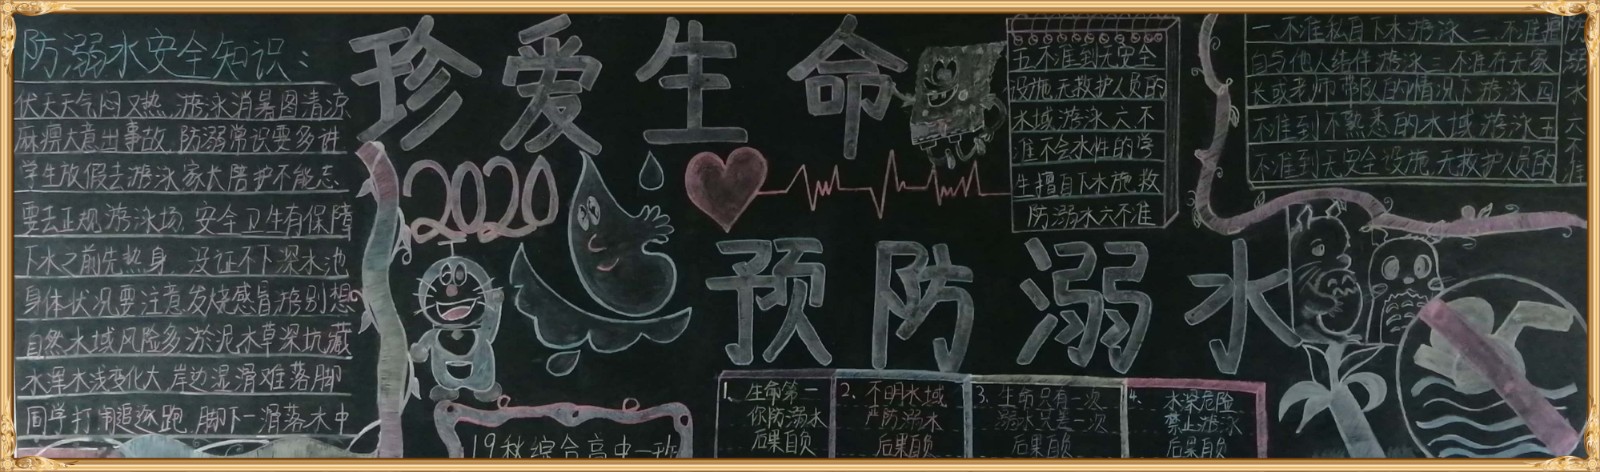 防溺水安全知识：
伏天天气闷又热,游泳消暑图清凉
麻痹大意出事故,防溺常识要多讲
学生放假去游泳家长陪护不能忘
要去正规游泳场,安全卫生有保障
下水之前先热身 没证不下深水池
身体状况要注意发烧感冒游别想
自然水域风险多淤泥水草深坑藏
水浑水浅变化大,岸边湿滑难落脚
同学打闹追逐跑,脚下一滑落水中
珍爱生命
2020
预防溺水
五不准到无安全
设施,无救护人员的
水域游泳六不
准不会水性的学
生擅自下水施救
防溺水六不准
一.不准私自下水游泳二.不准擅
自与他人结伴游泳三不准在无家
长或老师带队的情况下游泳四
不准到不熟悉的水域游泳五
不准到无安全设施,无救护人员的
防溺水六不准
19秋综合高中一班
1. 生命第一
你防溺水
后果自负
2. 不明水域
严防溺水
后果自负
3. 生命只有一次
溺水只差一次
后果自负
4. 水深危险
禁止游泳
后果自负